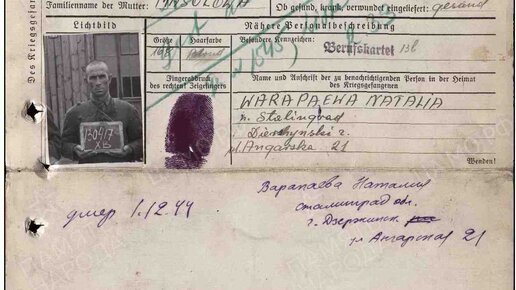 Familienname der Mutter:
Ob gesund, krank, verwundet eingeliefert: gesund
Des Kriegsgefan
Lichtbild
Nähere Personalbeschreibung
Größe
Haarfarbe
Besondere Kennzeichen:
Berufskartei 13b
Fingerabdruck
des rechten Zeigefingers
Name und Anschrift der zu benachrichtigenden Person in der Heimat
des Kriegsgefangenen
WARAPAEWA NATALIA
Stalingrad
Dierżyński r.
ul. Angarska 21
Wenden!
XB
Варапаева Наталия
Сталинград обл.
г. Дзержинск
ул Ангарская 21
умер 1.12.44